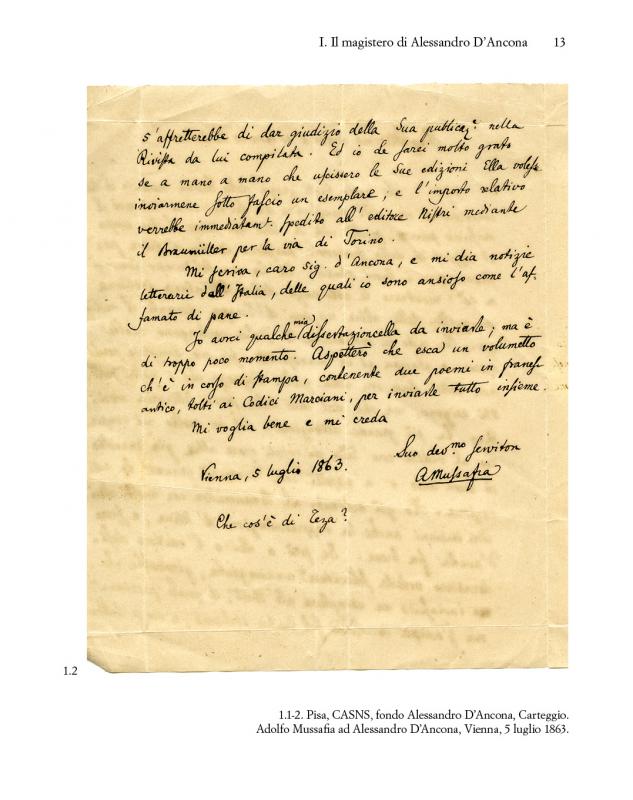 I. Il magistero di Alessandro D'Ancona 13
s'affretterebbe di dar giudizio della Sua publicaz.e nella
Rivista da lui compilata. Ed io Le sarei molto grato
se a mano a mano che uscissero le Sue edizioni Ella volesse
inviarmene sotto fascio un esemplare; e l'importo relativo
verrebbe immediatam.e spedito all'editore Nistri mediante
il Braumüller per la via di Torino.
Mi scriva, caro Sig. d'Ancona, e mi dia notizie
letterarie dall'Italia, delle quali io sono ansioso come l'af-
famato di pane.
Io avrei qualche mia dissertazioncella da inviarle; ma è
di troppo poco momento. Aspetterò che esca un volumetto
ch'è in corso di stampa, contenente due poemi in franese
antico, tolti ai Codici Marciani, per inviarle tutto insieme.
Mi voglia bene e mi creda
Suo dev.mo servitor
AMussafia
Vienna, 5 luglio 1863.
Che cos'è di Teza?
1.2
1.1-2. Pisa, CASNS, fondo Alessandro D'Ancona, Carteggio.
Adolfo Mussafia ad Alessandro D'Ancona, Vienna, 5 luglio 1863.